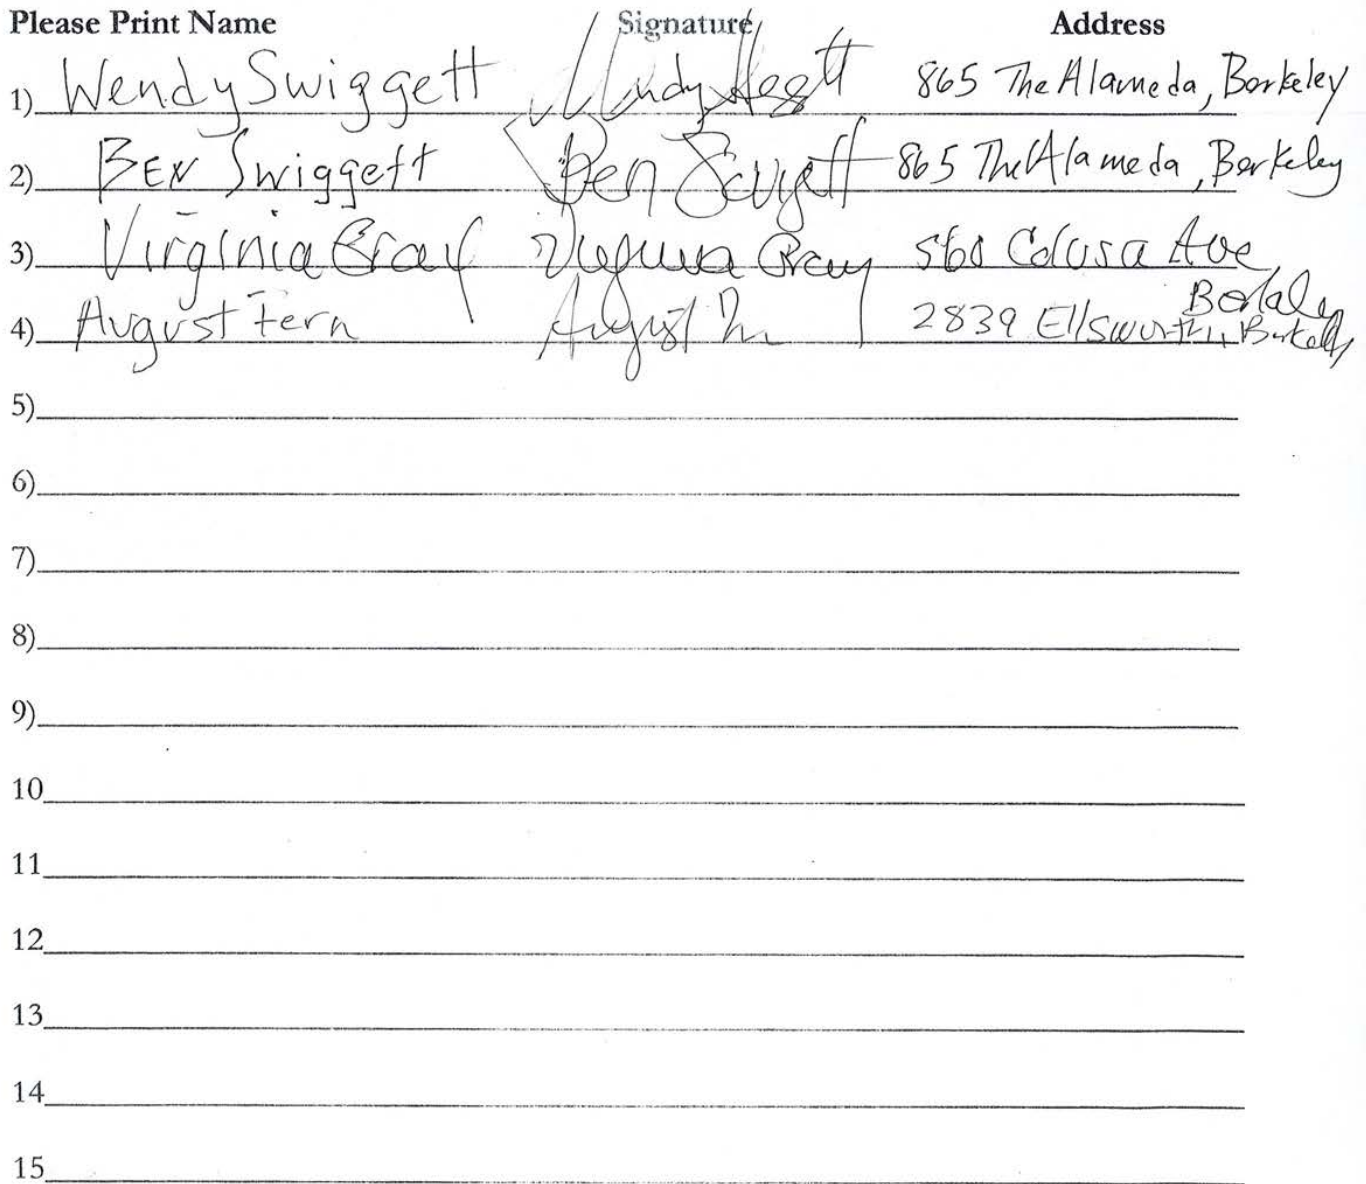 Please Print Name Signature Address
1) Wendy Swiggett Wendy Swiggett 865 The Alameda, Berkeley
2) BEN Swiggett Ben Swiggett 865 The Alameda, Berkeley
3) Virginia Gray Virginia Gray 560 Colusa Ave
Berkeley
4) August Fern August 2839 Ellsworth, Berkeley
5)
6)
7)
8)
9)
10
11
12
13
14
15